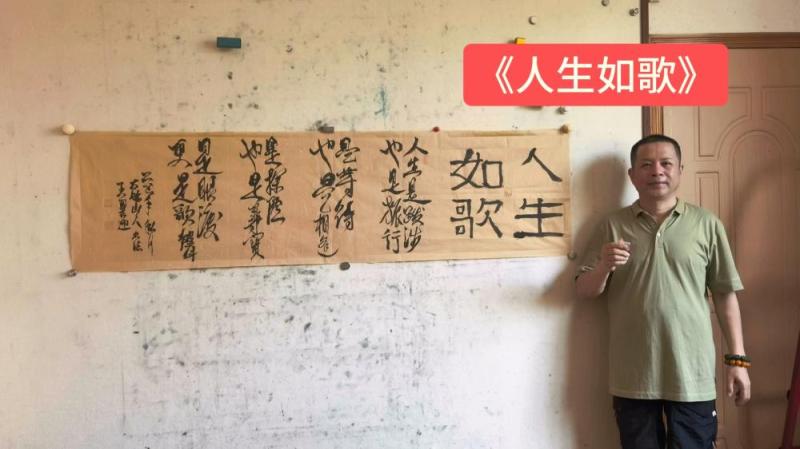 《人生如歌》
人生
如歌
人生是跋涉
也是旅行
是等待
也是相逢
是探险
也是寻宝
是眼泪
更是歌声